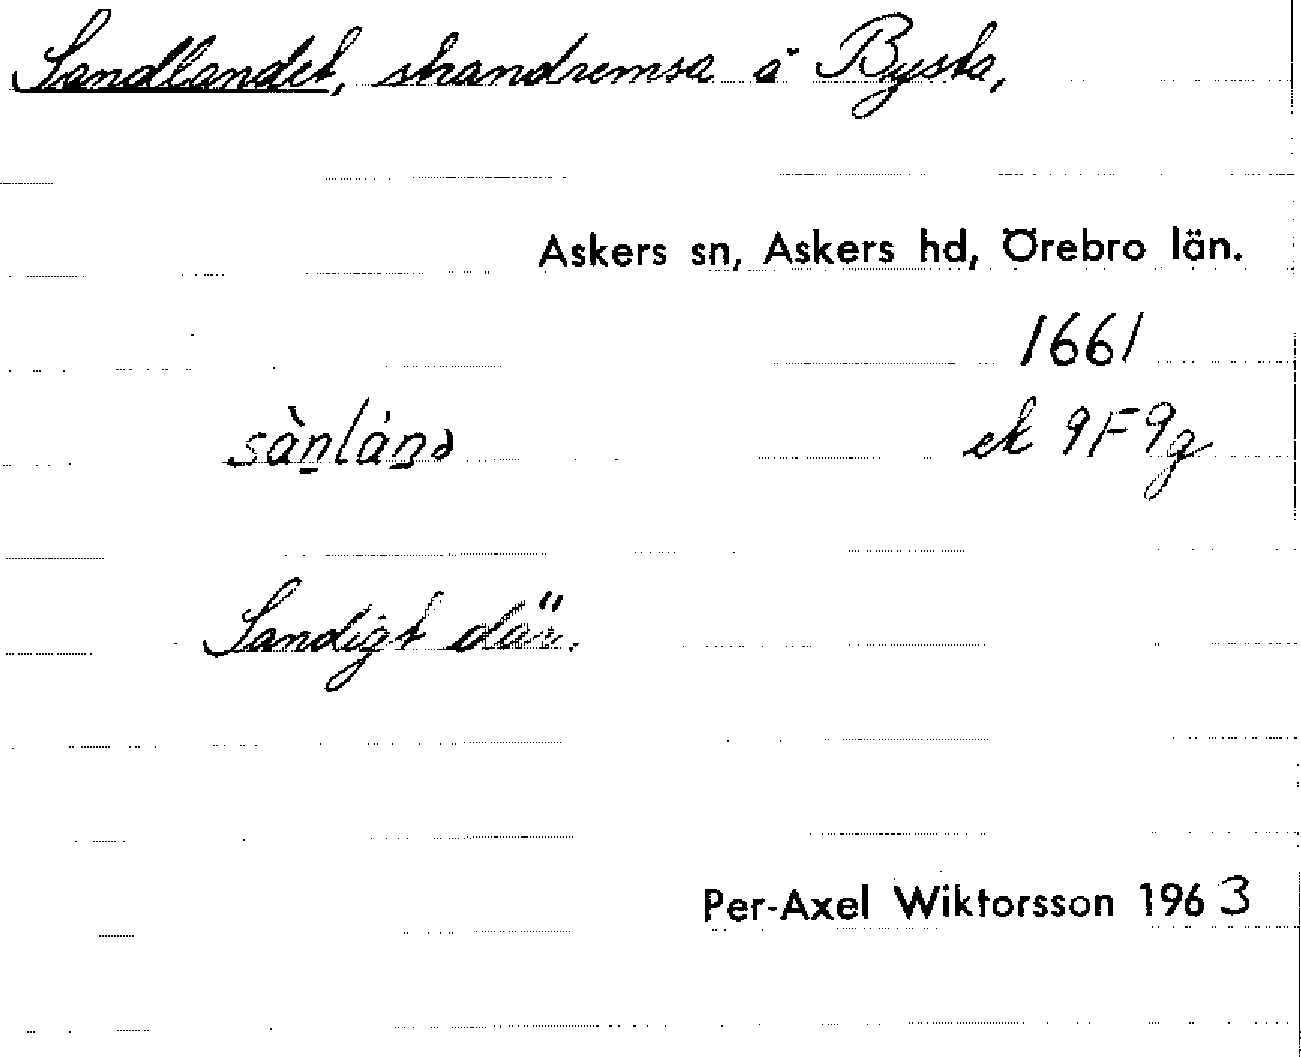 Sandlandet, strandremsa å Bysta,
Askers sn, Askers hd, Örebro län.
1661
sànlánə ek 9F9g
Sandigt där.
Per-Axel Wiktorsson 1963